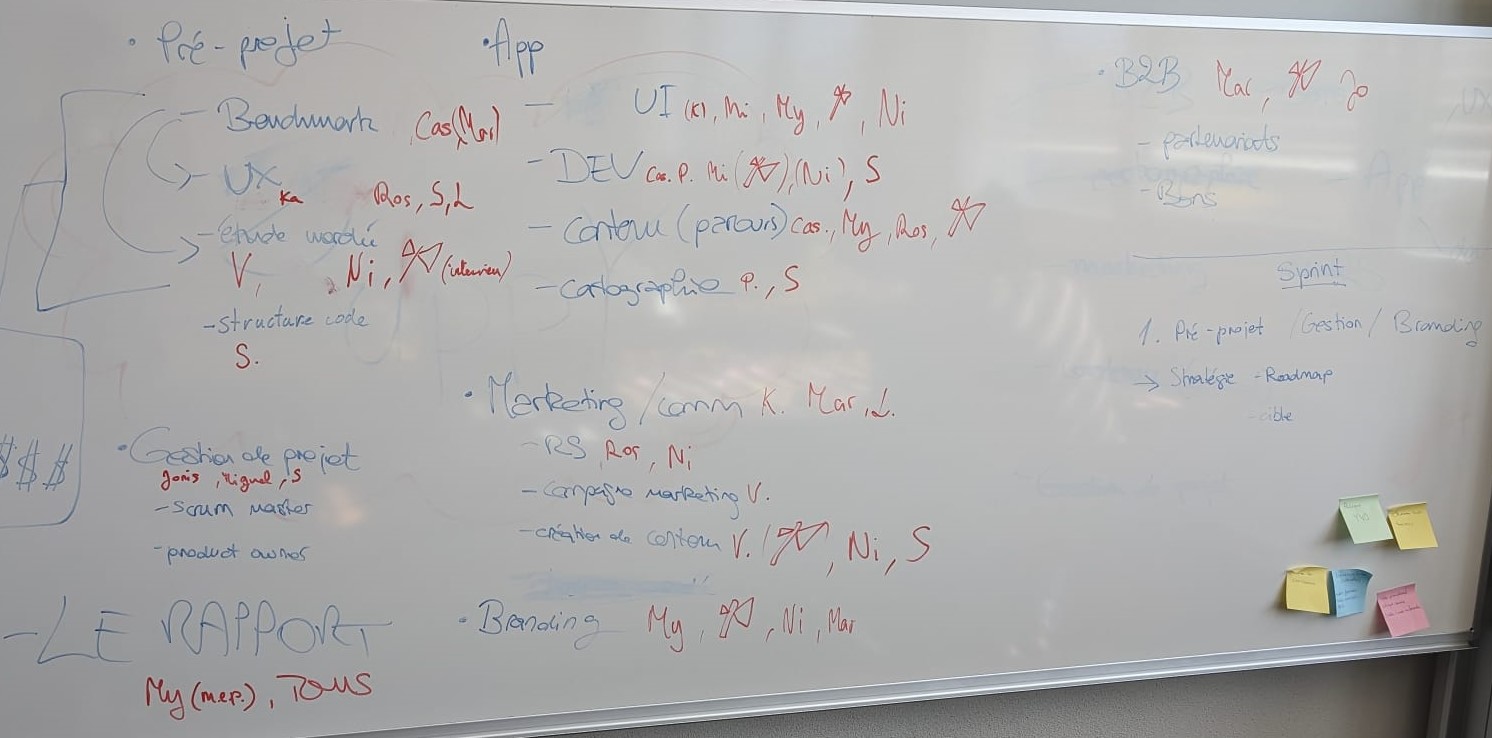 • Pré-projet
- Benchmark Cas(Mar)
- UX Ka Ros, S, L
- étude marché
V, Ni, (interview)
- structure code
S.
$$$
• Gestion de projet
Joris, Miguel, S
- scrum master
- product owner
- LE RAPPORT
My (m.e.p.), TOUS
• App
- UI (K), Mi, My, Ni
- DEV Cas. P. Mi (Ni), S
- Contenu (parcours) Cas., My, Ros,
- cartographie P., S
• Marketing/comm K. Mar, L.
- RS Ros, Ni
- campagne marketing V.
- création de contenu V. Ni, S
• Branding My, Ni, Mar
• B2B Mar, Jo
- partenariats
- Bons
Sprint
1. Pré-projet / Gestion / Branding
→ Stratégie - Roadmap
- cible